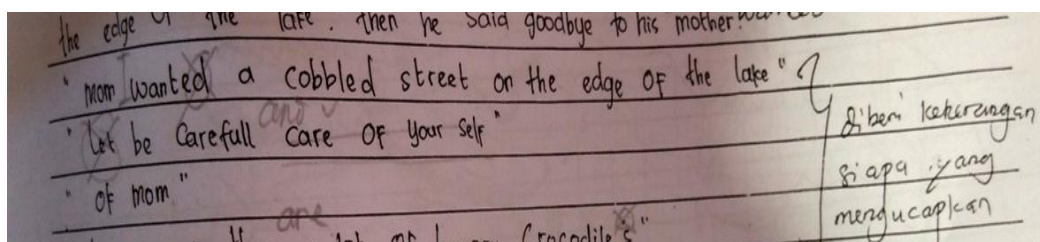 the edge of the lake. then he said goodbye to his mother.
"mom I wanted a cobbled street on the edge of the lake"
"Let be Carefull and care of your self"
"of mom"
diberi keterangan
siapa yang
mengucapkan
are
Crocodile's"